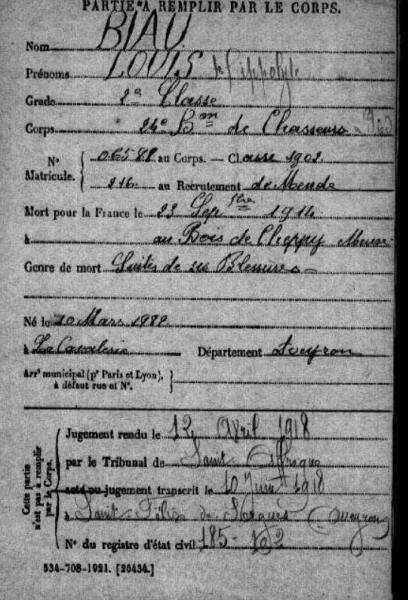 PARTIE A REMPLIR PAR LE CORPS.
Nom BIAU
Prénoms LOUIS Hippolyte
Grade 2e Classe
Corps 24e Bon de Chasseurs à Pied
N° Matricule. { 06582 au Corps. — Classe 1902
216 au Recrutement de Mende
Mort pour la France le 23 Septbre 1914
à au Bois de Cheppy Meuse
Genre de mort Suites de ses Blessures
Né le 10 Mars 1882
à La Cavalerie Département Aveyron
Arrt municipal (pr Paris et Lyon), à défaut rue et N°.
Cette partie n'est pas à remplir par le Corps.
Jugement rendu le 12 Avril 1918
par le Tribunal de Saint Affrique
acte ou jugement transcrit le 10 Juin 1918
à Saint Félix de Sorgues (Aveyron)
N° du registre d'état civil 185-
534-708-1921. [26434.]